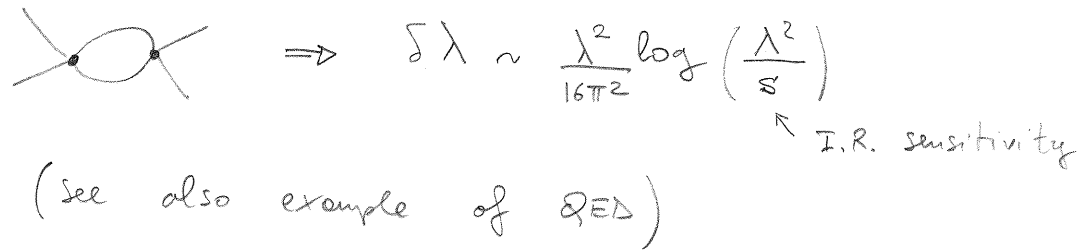 ⇒ δλ ~ λ²/16π² log (λ²/s)
↖ I.R. sensitivity
(see also example of QED)